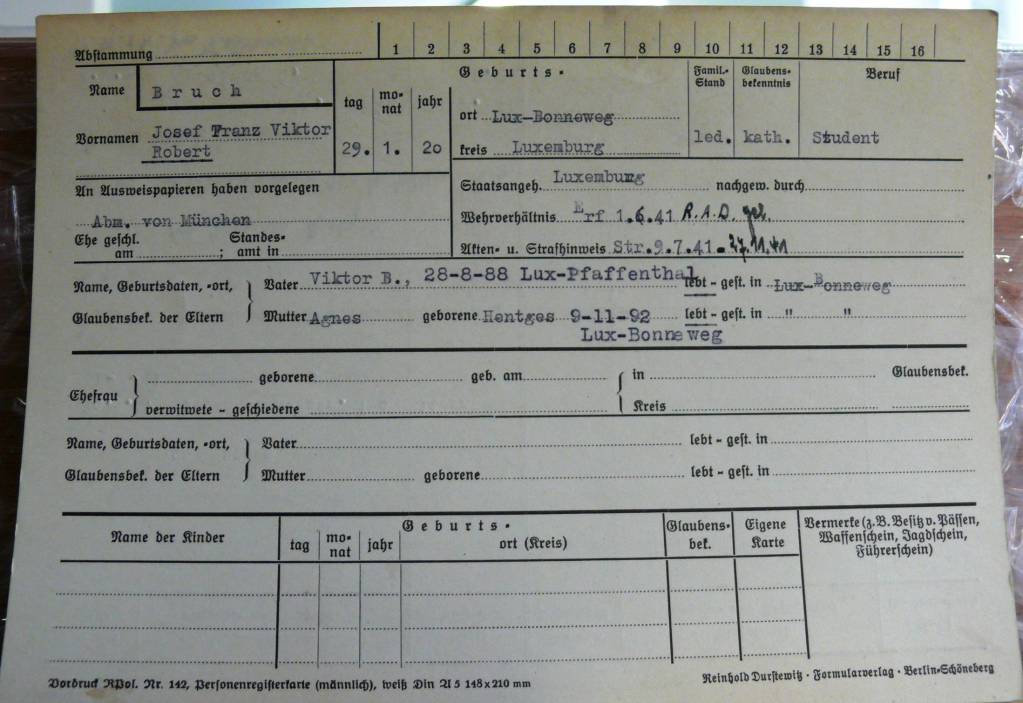 Abstammung 1 2 3 4 5 6 7 8 9 10 11 12 13 14 15 16
Name Bruch
Vornamen Josef Franz Viktor
Robert
tag monat jahr
29. 1. 20
Geburts-
ort Lux-Bonneweg
kreis Luxemburg
Famil.-Stand
led.
Glaubens-bekenntnis
kath.
Beruf
Student
An Ausweispapieren haben vorgelegen
Abm. von München
Ehe geschl. Standes-
am ; amt in
Staatsangeh. Luxemburg nachgew. durch
Wehrverhältnis Erf 1.6.41 R.A.D. gel.
Akten- u. Strafhinweis Str.9.7.41 - 27.11.41
Name, Geburtsdaten, -ort, Vater Viktor B., 28-8-88 Lux-Pfaffenthal lebt - gest. in Lux-Bonneweg
Glaubensbek. der Eltern Mutter Agnes geborene Hentges 9-11-92 lebt - gest. in " "
Lux-Bonneweg
Ehefrau geborene geb. am in Glaubensbek.
verwitwete - geschiedene Kreis
Name, Geburtsdaten, -ort, Vater lebt - gest. in
Glaubensbek. der Eltern Mutter geborene lebt - gest. in
Name der Kinder
Geburts-
tag monat jahr ort (Kreis)
Glaubens-bek.
Eigene Karte
Vermerke (z.B. Besitz v. Pässen,
Waffenschein, Jagdschein,
Führerschein)
Vordruck RPol. Nr. 142, Personenregisterkarte (männlich), weiß Din A 5 148x210 mm
Reinhold Durstewitz · Formularverlag · Berlin-Schöneberg